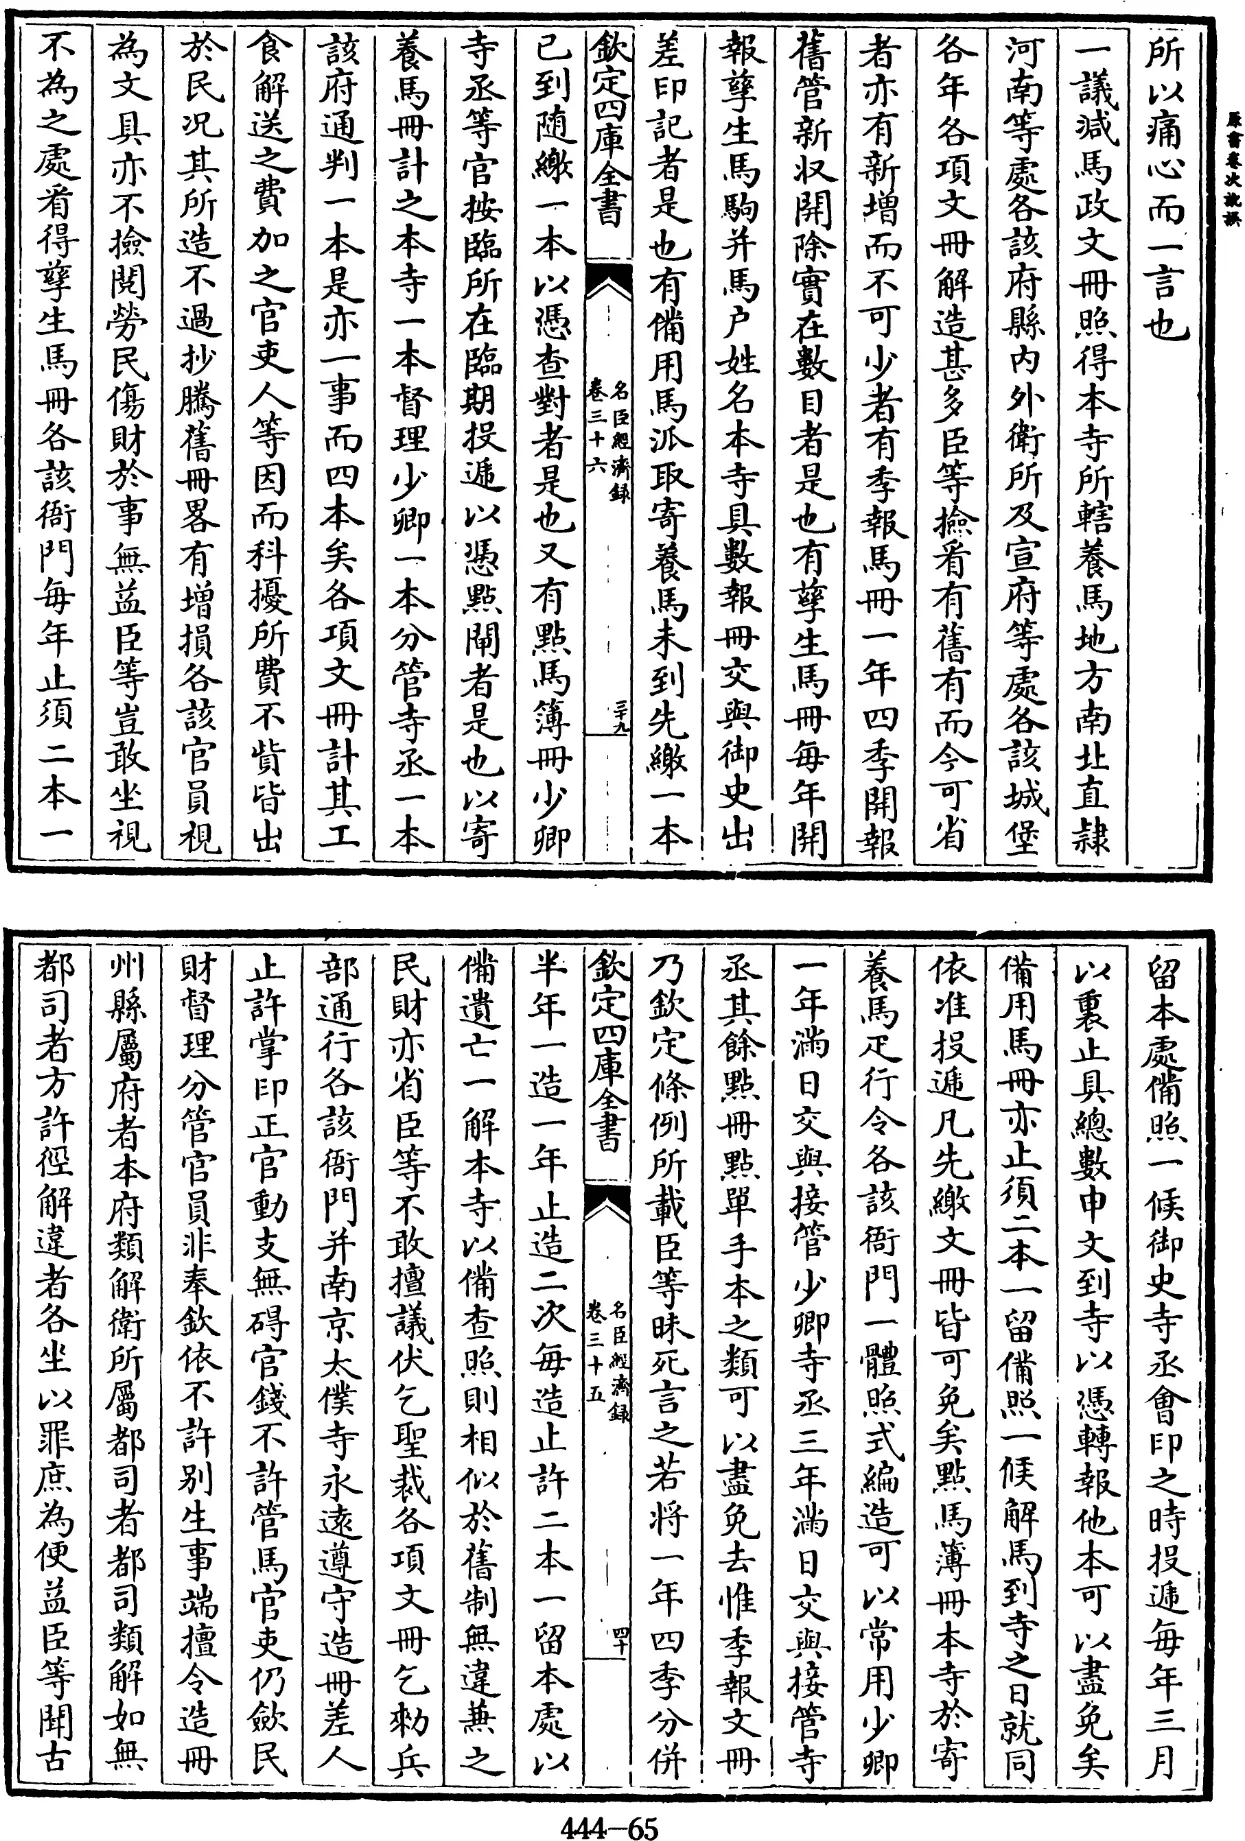 原書卷次訛誤
所以痛心而一言也
一議減馬政文冊照得本寺所轄養馬地方南北直隸
河南等處各該府縣內外衛所及宣府等處各該城堡
各年各項文冊解造甚多臣等撿看有舊有而今可省
者亦有新增而不可少者有季報馬冊一年四季開報
舊管新収開除實在數目者是也有孳生馬冊每年開
報孳生馬駒并馬户姓名本寺具數報冊交與御史出
差印記者是也有備用馬派取寄養馬未到先繳一本
欽定四庫全書
名臣經濟録
卷三十六
三十九
已到隨繳一本以憑查對者是也又有點馬簿冊少卿
寺丞等官按臨所在臨期投遞以憑點閘者是也以寄
養馬冊計之本寺一本督理少卿一本分管寺丞一本
該府通判一本是亦一事而四本矣各項文冊計其工
食解送之費加之官吏人等因而科擾所費不貲皆出
於民况其所造不過抄騰舊冊畧有增損各該官員視
為文具亦不撿閱勞民傷財於事無益臣等豈敢坐視
不為之處看得孳生馬冊各該衙門每年止須二本一
留本處備照一候御史寺丞會印之時投遞每年三月
以裏止具總數申文到寺以憑轉報他本可以盡免矣
備用馬冊亦止須二本一留備照一候解馬到寺之日就同
依准投遞凡先繳文冊皆可免矣點馬薄冊本寺於寄
養馬疋行令各該衙門一體照式編造可以常用少卿
一年滿日交與接管少卿寺丞三年滿日交與接管寺
丞其餘點冊點單手本之類可以盡免去惟季報文冊
乃欽定條例所載臣等昧死言之若將一年四季分併
欽定四庫全書
名臣經濟録
卷三十五
四十
半年一造一年止造二次每造止許二本一留本處以
備遺亡一解本寺以備查照則相似於舊制無違兼之
民財亦省臣等不敢擅議伏乞聖裁各項文冊乞勑兵
部通行各該衙門并南京太僕寺永遠遵守造冊差人
止許掌印正官動支無碍官錢不許管馬官吏仍歛民
財督理分管官員非奉欽依不許別生事端擅令造冊
州縣屬府者本府類解衛所屬都司者都司類解如無
都司者方許徑解違者各坐以罪庶為便益臣等聞古
444-65